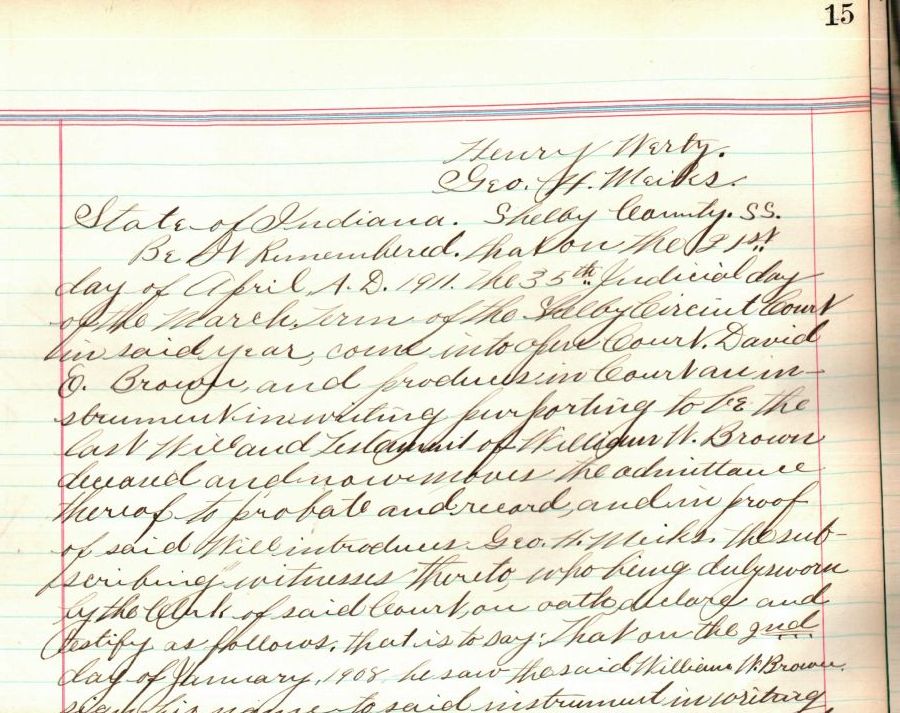 15
Henry Werty.
Geo. H. Meiks.
State of Indiana. Shelby County. SS.
Be It Remembered. that on the 21st
day of April, A.D. 1911. the 35th Judicial day
of the March Term of the Shelby Circuit Court
in said year, come into open Court. David
E. Brown, and produces in Court an in-
strument in writing purporting to be the
last Will and Testament of William W. Brown
deceased and now moves the admittance
thereof to probate and record, and in proof
of said Will introduces Geo. H. Meiks. the sub-
scribing witnesses thereto, who being duly sworn
by the Clerk of said Court, on oath declare and
testify as follows, that is to say; That on the 2nd
day of January, 1908, he saw the said William W. Brown.
sign his name to said instrument in writing